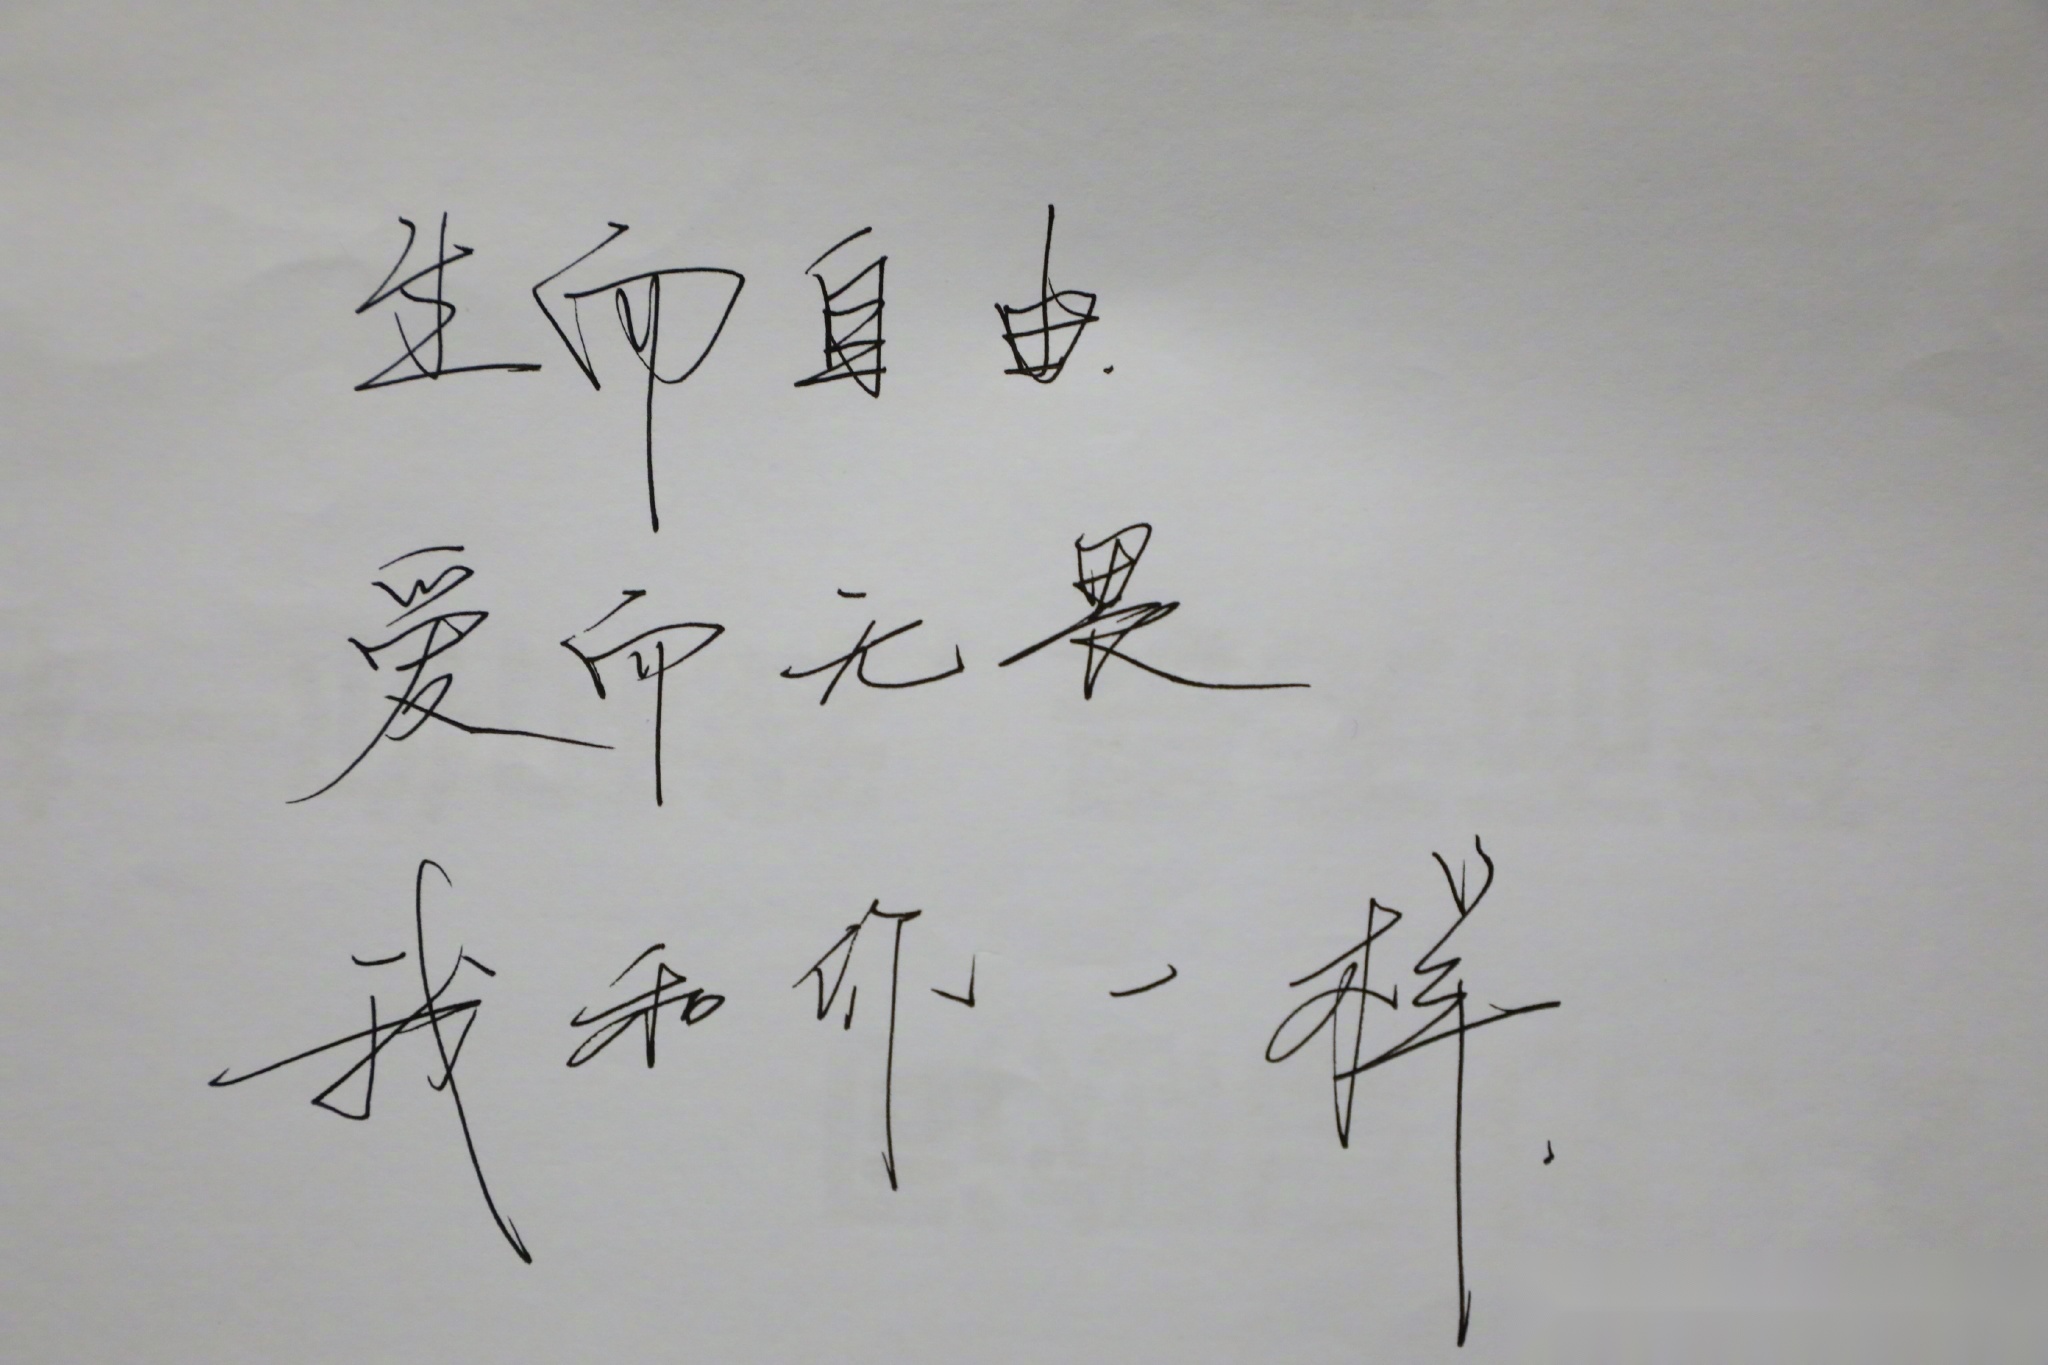 生而自由.
爱而无畏
我和你、一样.